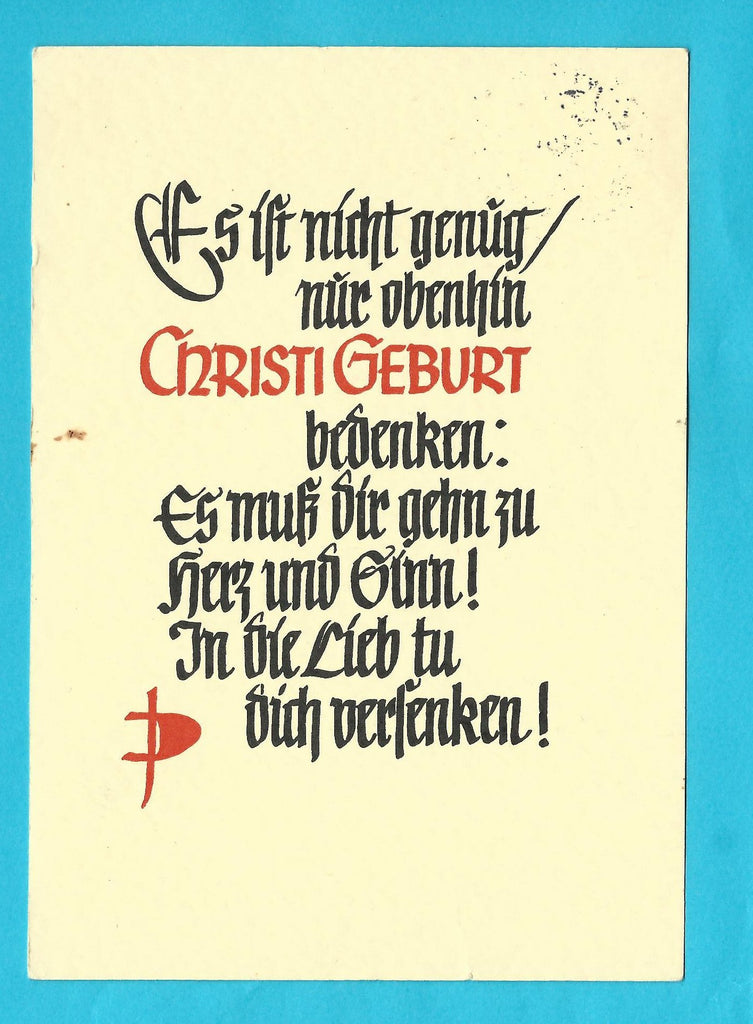 Es ist nicht genug/
nur obenhin
CHRISTI GEBURT
bedenken:
Es muß dir gehn zu
Herz und Sinn!
In die Lieb tu
dich versenken!